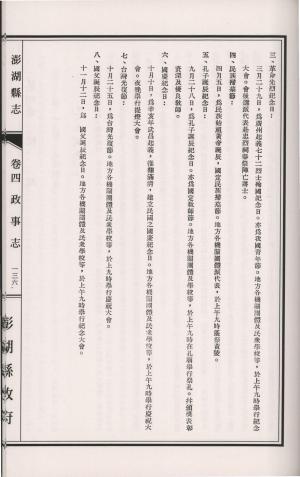 三、革命先烈紀念日：
三月二十九日，為廣州起義七十二烈士殉國紀念日。亦為我國青年節。地方各機關團體及民衆學校等，於上午九時舉行紀念
大會。會後謹派代表赴忠烈祠奉祭陣亡將士。
四、民族掃墓節：
四月五日，為民族始祖黃帝誕辰，國定民族掃墓節。地方各機關團體派代表，於上午九時遙祭黃陵。
五、孔子誕辰紀念日：
九月二十八日，為孔子誕辰紀念日。亦為國定教師節。地方各機關團體及民衆學校等，於上午九時在孔廟舉行祭孔。並頒獎表彰
資深及優良教師。
六、國慶紀念日：
十月十日，為辛亥年武昌起義，推翻滿清，建立民國之國慶紀念日。地方各機關團體及民衆學校等，於上午九時舉行慶祝大
會。夜晚舉行提燈大會。
七、台灣光復節：
十月二十五日，為台灣光復節。地方各機關團體及民衆學校等，於上午九時舉行慶祝大會。
八、國父誕辰紀念日：
十一月十二日，為 國父誕辰紀念日。地方各機關團體及民衆學校等，於上午九時舉行紀念大會。
澎湖縣志
卷四政事志
一三六
澎湖縣政府